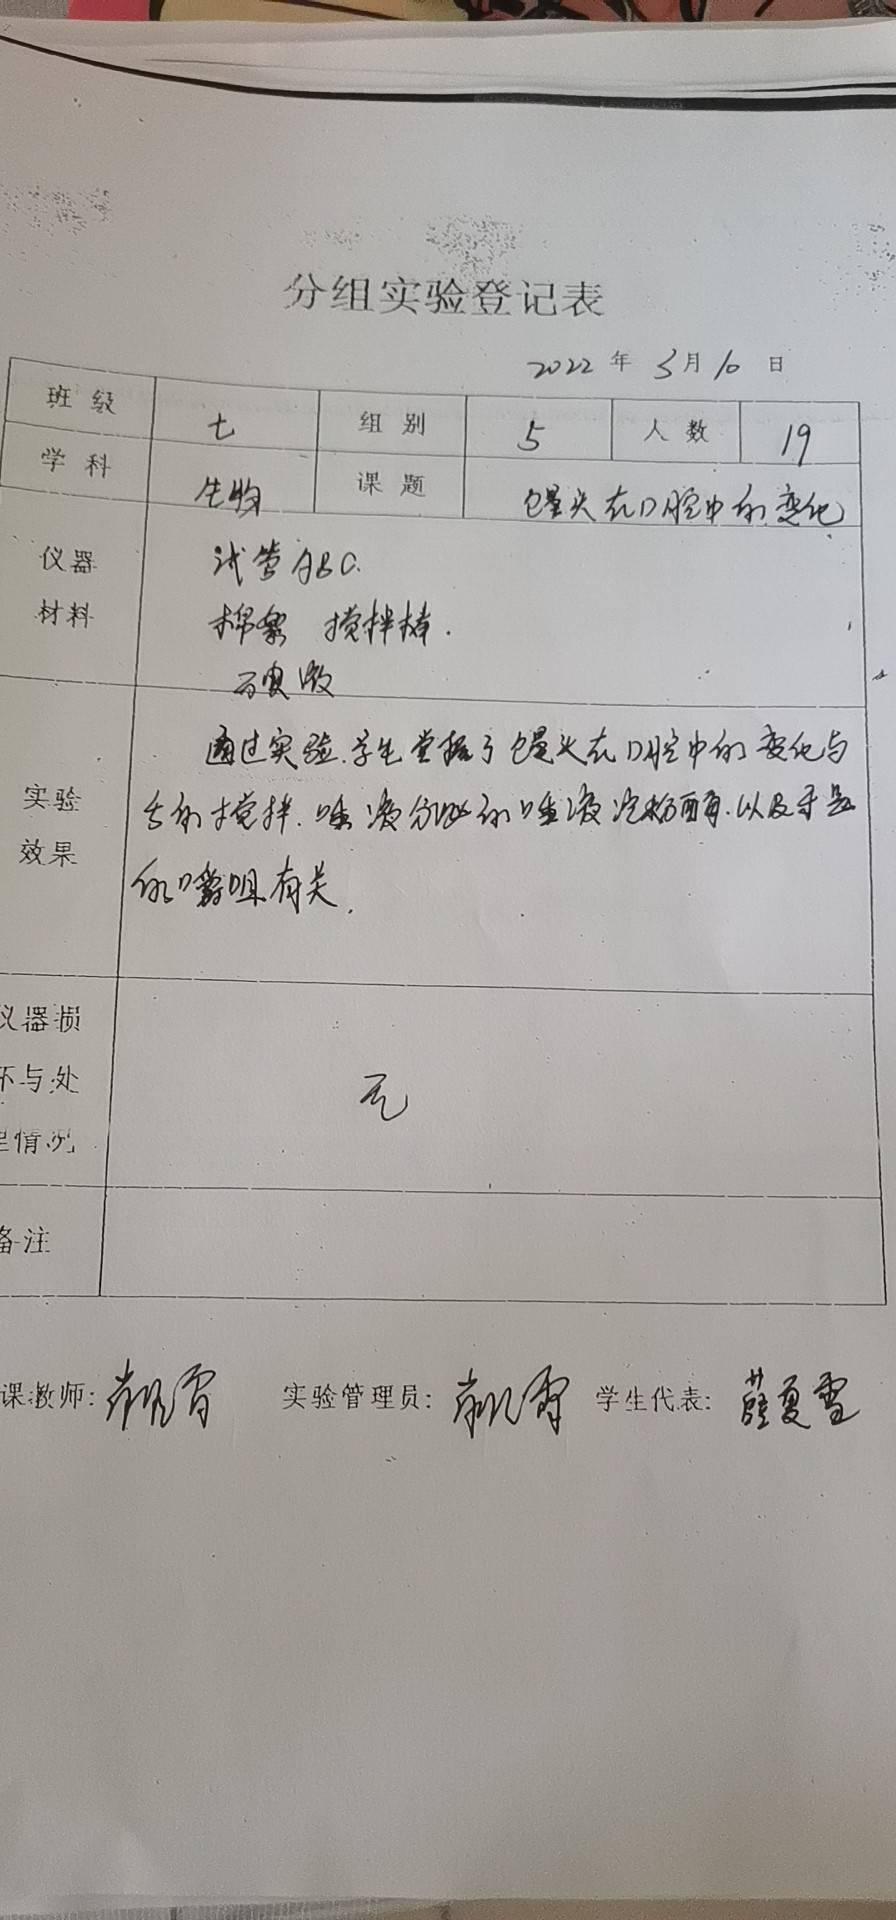 分组实验登记表
2022 年 3 月 10 日
班 级 七 组 别 5 人 数 19
学 科 生物 课 题 馒头在口腔中的变化
仪器 试管ABC.
材料 棉絮 搅拌棒.
碘液
通过实验.学生掌握了馒头在口腔中的变化与
实验 舌的搅拌.唾液分泌的唾液淀粉酶.以及牙齿
效果 的咀嚼有关.
仪器损
坏与处 无
理情况
备注
课教师: 实验管理员: 学生代表: 薛夏雪